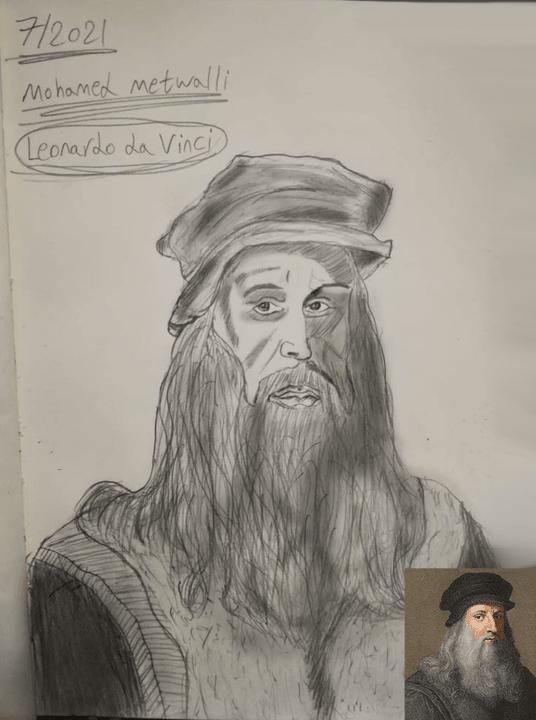 7/2021
Mohamed metwalli
Leonardo da Vinci